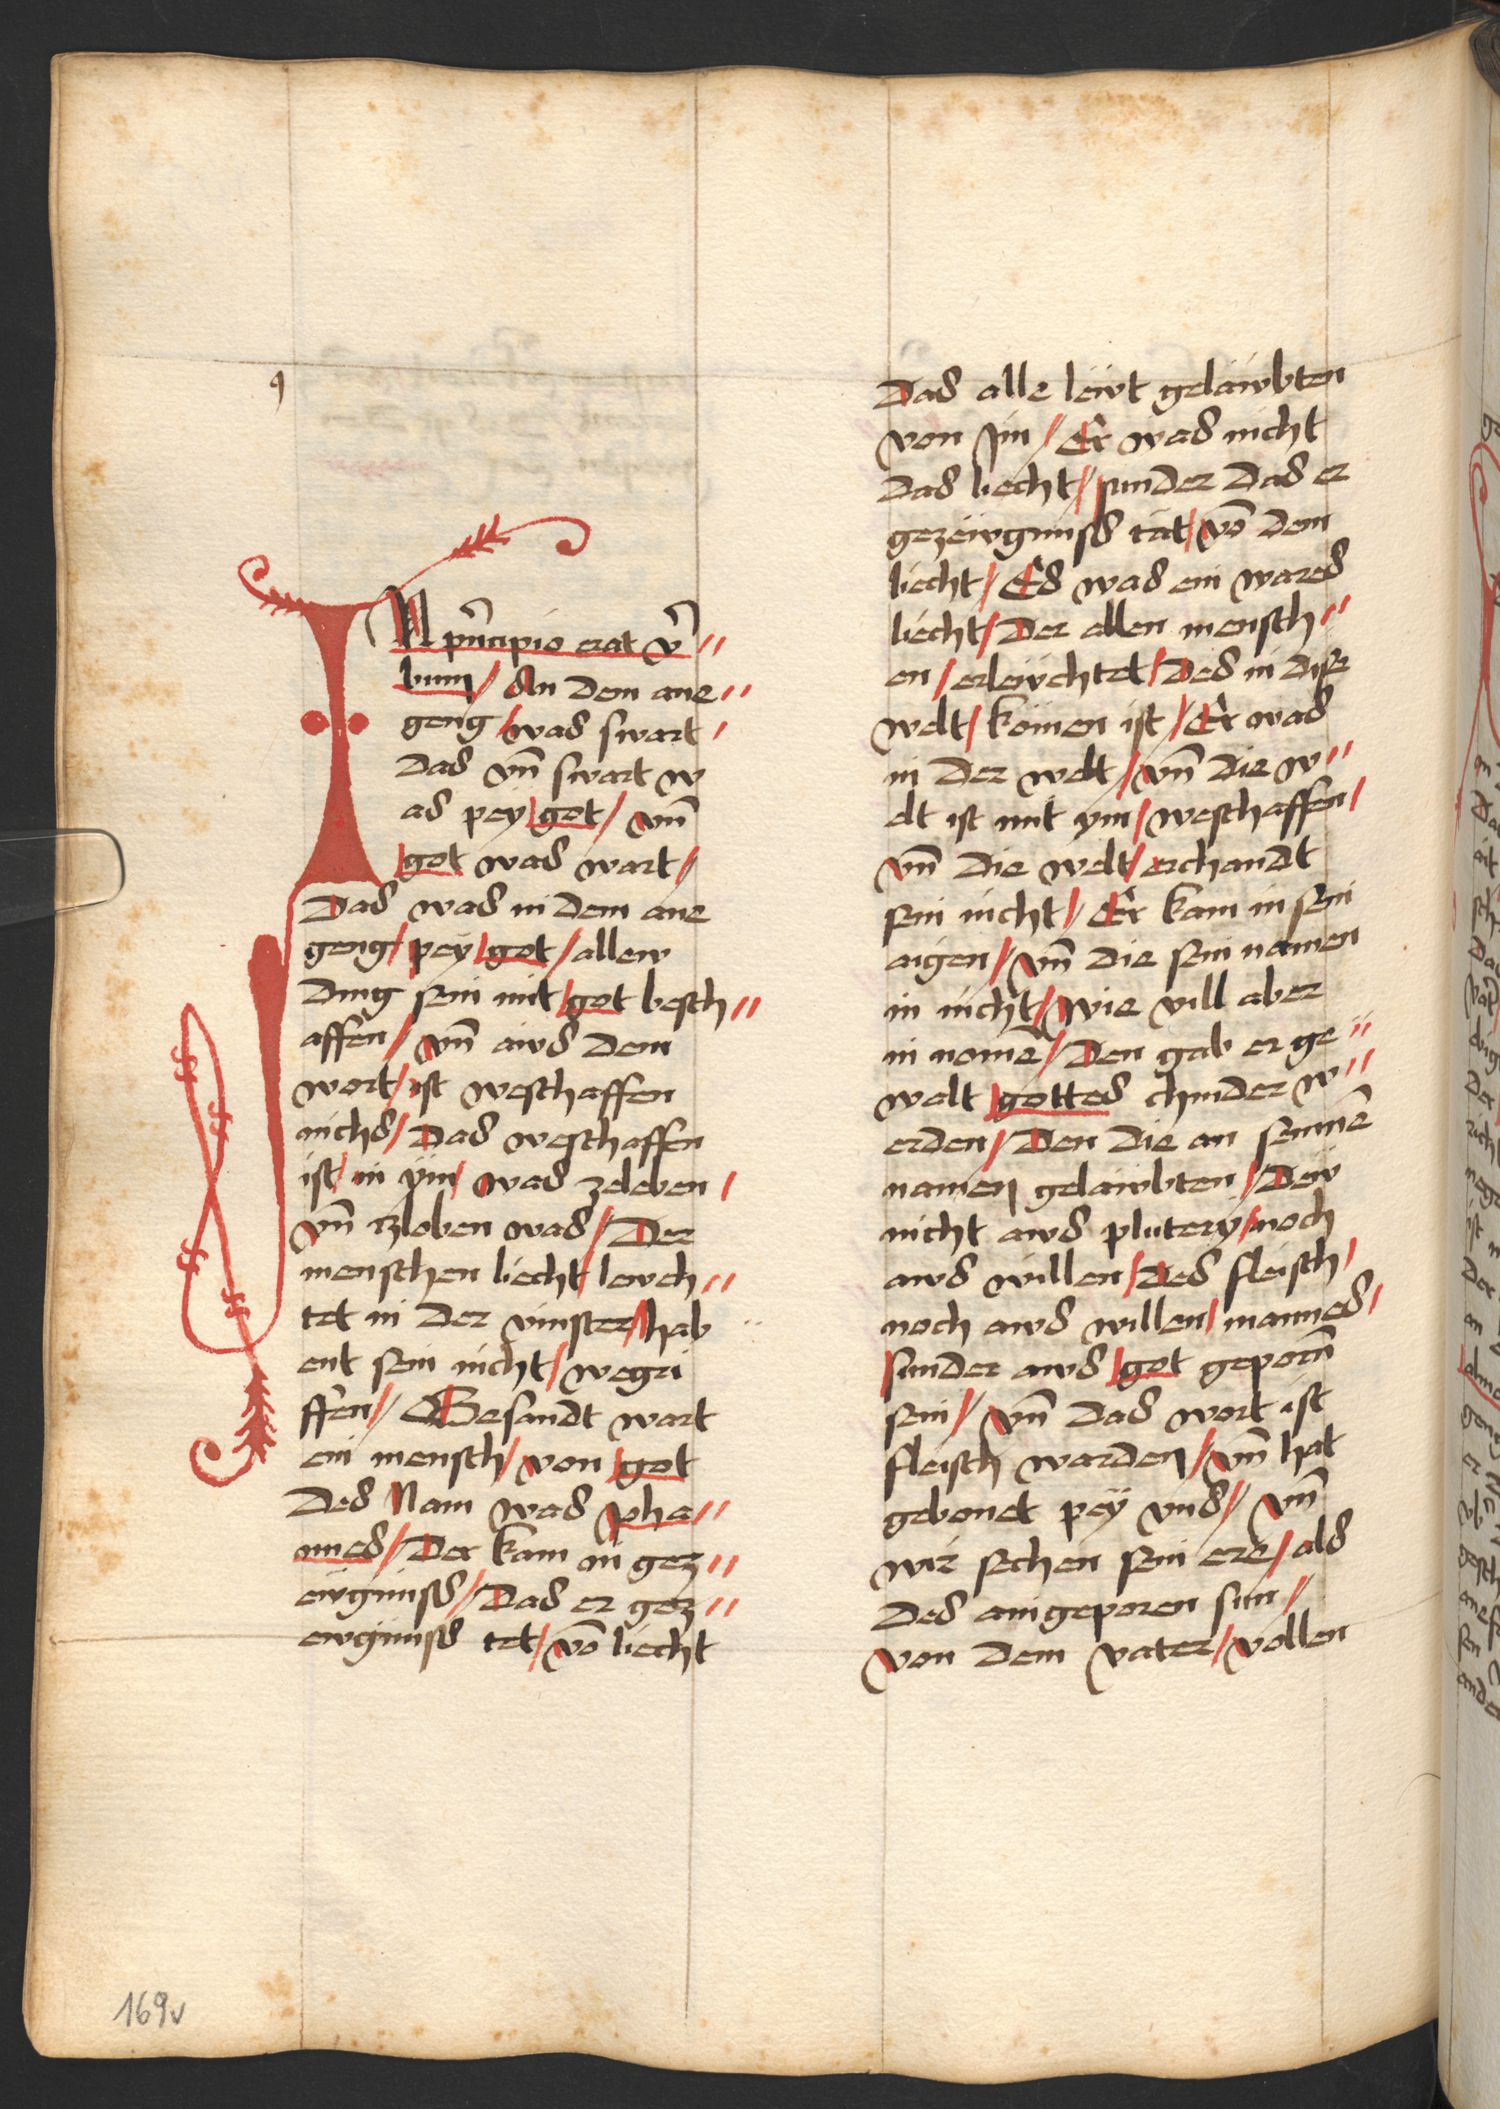 IN pͥncipio erat v̄//
bum/ An dem ane//
geng/ was swart/
Das vn̄ swart w
as pey got/ vn̄
got was wart/
Das was in dem ane
geng/ pey got/ allew
ding sein mit got besch//
affen/ vn̄ aws dem
wort/ ist weschaffen
nichs/ Das weschaffen
ist/ in ÿm/ was zeleben/
vn̄ czloben was/ Der
menschen liecht/ lewch//
tet in der vinster/ hab
ent sein nicht/ wegri
ffen/ Gesandt wart
ein mensch/ von got
Des Nam was Joha//
nnes/ Der kam in gez//
ewgnuss/ Das er gez//
ewgnuss tet/ vō liecht
Das alle lewt gelawbten
von Jm/ Er was nicht
das liecht/ sunder das er
gezewgnuss tät/ vō dem
liecht/ Es was ein wares
liecht/ Der allen mensch//
en/ erlewchtet/ Des in dise
welt/ komen ist/ Er was
in der welt/ vn̄ die w//
elt ist mit ym/ weschaffen/
vn̄ die welt/ erchandt
sein nicht/ Er kam in sein
aigen/ vn̄ die sein namen
in nicht/ wie vill aber
in nomē/ Den gab er ge//
walt gottes chinder w//
erden/ Den die an seinnē
namen gelawbten/ Dew
nicht aws plutery/ noch
aws willen/ Des fleisch/
noch aws willen/ mannes/
sunder aws got geporn̄
sein/ vn̄ Das wort ist
fleisch warden/ vn̄ hat
gebonet pey vns/ vn̄
wir sechen sein ere/ als
Des aingeporen sun/
von dem vater/ vollen
169v